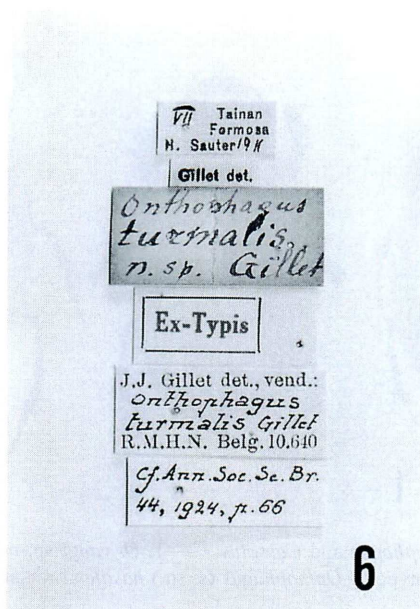 VII Tainan
Formosa
H. Sauter 19
Gillet det.
Onthophagus
turmalis.
n. sp. Gillet
Ex-Typis
J.J. Gillet det., vend.:
Onthophagus
turmalis Gillet
R.M.H.N. Belg. 10.640
Cf. Ann. Soc. Sc. Br.
44, 1924, p. 66
6